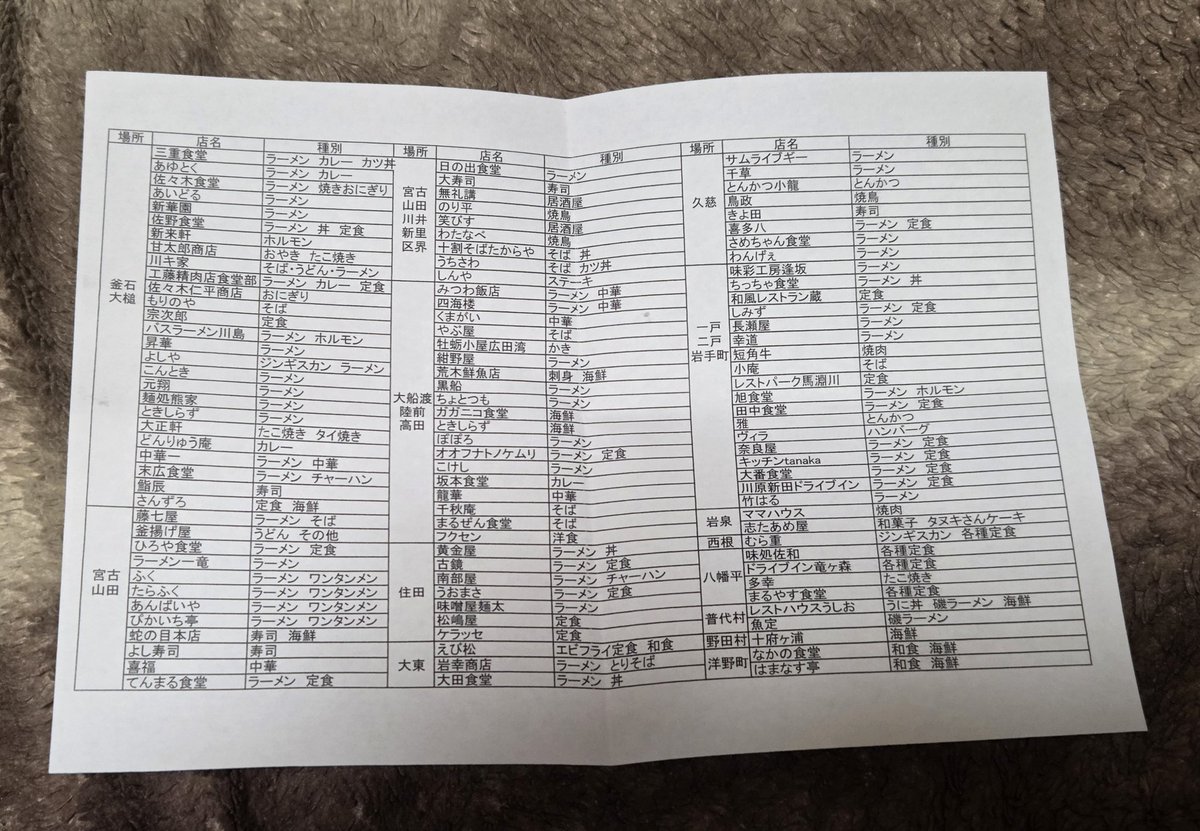 場所 店名 種別
釜石
大槌
三重食堂 ラーメン カレー カツ丼
あゆとく ラーメン カレー
佐々木食堂 ラーメン 焼きおにぎり
あいどる ラーメン
新華園 ラーメン
佐野食堂 ラーメン 丼 定食
新来軒 ホルモン
甘太郎商店 おやき たこ焼き
川キ家 そば・うどん・ラーメン
工藤精肉店食堂部 ラーメン カレー 定食
佐々木仁平商店 おにぎり
もりのや そば
宗次郎 定食
バスラーメン川島 ラーメン ホルモン
昇華 ラーメン
よしや ジンギスカン ラーメン
こんとき ラーメン
元翔 ラーメン
麺処熊家 ラーメン
ときしらず ラーメン
大正軒 たこ焼き タイ焼き
どんりゅう庵 カレー
中華一 ラーメン 中華
末広食堂 ラーメン チャーハン
鮨辰 寿司
さんずろ 定食 海鮮
宮古
山田
藤七屋 ラーメン そば
釜揚げ屋 うどん その他
ひろや食堂 ラーメン 定食
ラーメン一竜 ラーメン
ふく ラーメン ワンタンメン
たらふく ラーメン ワンタンメン
あんばいや ラーメン ワンタンメン
ぴかいち亭 ラーメン ワンタンメン
蛇の目本店 寿司 海鮮
よし寿司 寿司
喜福 中華
てんまる食堂 ラーメン 定食
場所 店名 種別
宮古
山田
川井
新里
区界
日の出食堂 ラーメン
大寿司 寿司
無礼講 居酒屋
のり平 焼鳥
笑びす 居酒屋
わたなべ 焼鳥
十割そばたからや そば 丼
うちさわ そば カツ丼
しんや ステーキ
大船渡
陸前
高田
みつわ飯店 ラーメン 中華
四海楼 ラーメン 中華
くまがい 中華
やぶ屋 そば
牡蛎小屋広田湾 かき
紺野屋 ラーメン
荒木鮮魚店 刺身 海鮮
黒船 ラーメン
ちょとつも ラーメン
ガガニコ食堂 海鮮
ときしらず 海鮮
ぽぽろ ラーメン
オオフナトノケムリ ラーメン 定食
こけし ラーメン
坂本食堂 カレー
龍華 中華
千秋庵 そば
まるぜん食堂 そば
フクセン 洋食
住田
黄金屋 ラーメン 丼
古鏡 ラーメン 定食
南部屋 ラーメン チャーハン
うおまさ ラーメン 定食
味噌屋麺太 ラーメン
松嶋屋 定食
ケラッセ 定食
大東
えび松 エビフライ定食 和食
岩幸商店 ラーメン とりそば
大田食堂 ラーメン 丼
場所 店名 種別
久慈
サムライブギー ラーメン
千草 ラーメン
とんかつ小龍 とんかつ
鳥政 焼鳥
きよ田 寿司
喜多八 ラーメン 定食
さめちゃん食堂 ラーメン
わんげぇ ラーメン
一戸
二戸
岩手町
味彩工房逢坂 ラーメン
ちっちゃ食堂 ラーメン 丼
和風レストラン蔵 定食
しみず ラーメン 定食
長瀬屋 ラーメン
幸道 ラーメン
短角牛 焼肉
小庵 そば
レストパーク馬淵川 定食
旭食堂 ラーメン ホルモン
田中食堂 ラーメン 定食
雅 とんかつ
ヴィラ ハンバーグ
奈良屋 ラーメン 定食
キッチンtanaka ラーメン 定食
大番食堂 ラーメン 定食
川原新田ドライブイン ラーメン 定食
竹はる ラーメン
岩泉
ママハウス 焼肉
志たあめ屋 和菓子 タヌキさんケーキ
西根 むら重 ジンギスカン 各種定食
八幡平
味処佐和 各種定食
ドライブイン竜ヶ森 各種定食
多幸 たこ焼き
まるやす食堂 各種定食
普代村
レストハウスうしお うに丼 磯ラーメン 海鮮
魚定 磯ラーメン
野田村 十府ヶ浦 海鮮
洋野町
なかの食堂 和食 海鮮
はまなす亭 和食 海鮮